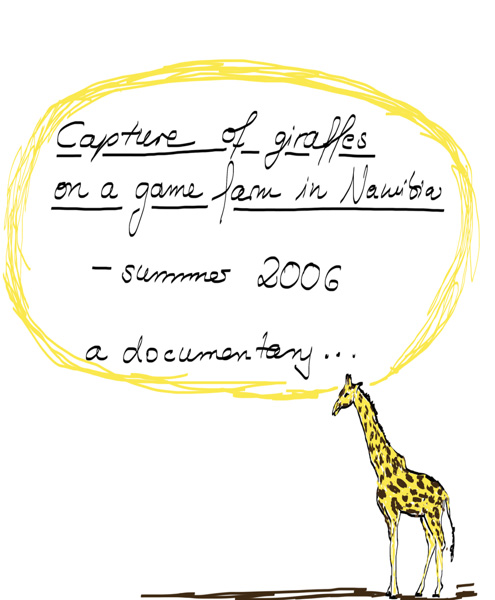 Capture of giraffes
on a game farm in Namibia
- summer 2006
a documentary...